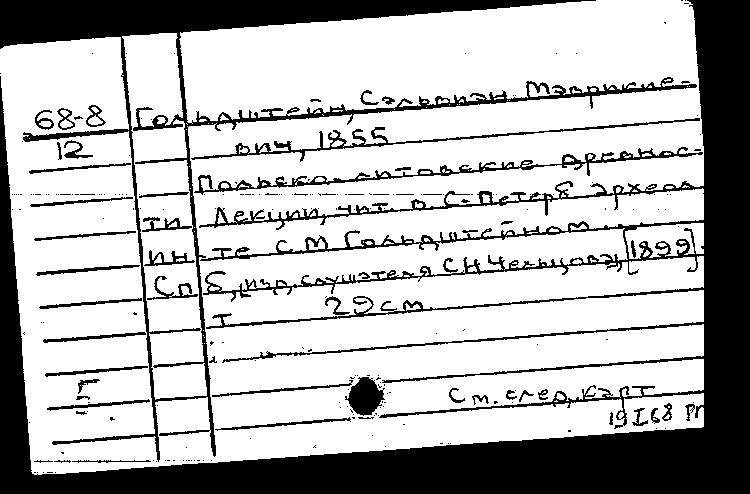 68-8
12
Гольдштейн, Сальвиан Маврикие-
вич, 1855
Польско-литовские древнос-
ти Лекции, чит. в С-Петерб археол
ин-те С.М Гольдштейном ....
Спб, изд. слушателя С Н Чельцова, [1899].
т 29 см.
5
См. след. карт
19 I 68 Рг